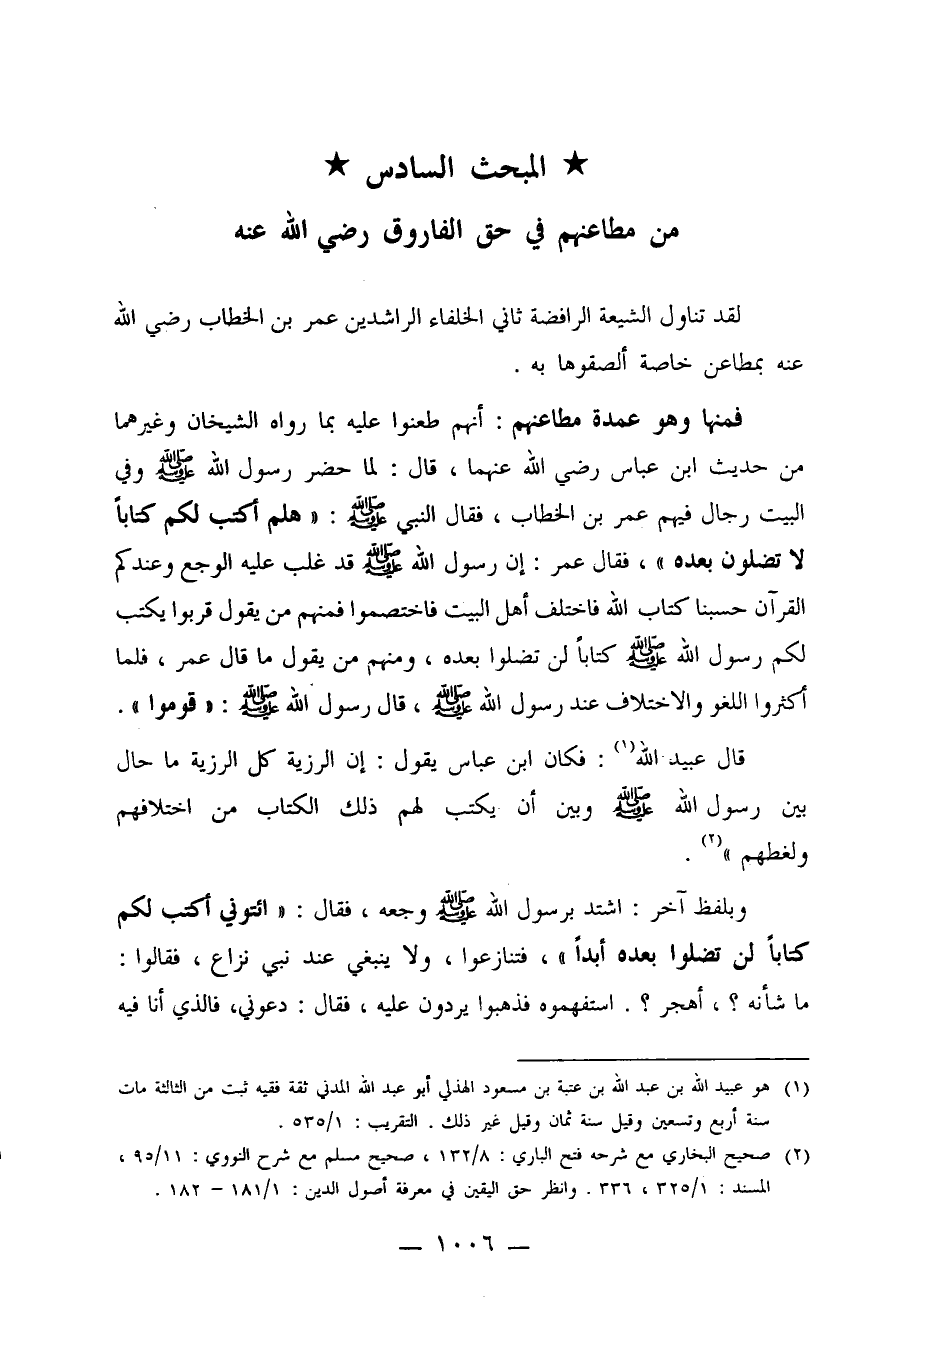 ★ المبحث السادس ★
من مطاعنهم في حق الفاروق رضي الله عنه
لقد تناول الشيعة الرافضة ثاني الخلفاء الراشدين عمر بن الخطاب رضي الله
عنه بمطاعن خاصة ألصقوها به .
فمنها وهو عمدة مطاعنهم : أنهم طعنوا عليه بما رواه الشيخان وغيرهما
من حديث ابن عباس رضي الله عنهما ، قال : لما حضر رسول الله ﷺ وفي
البيت رجال فيهم عمر بن الخطاب ، فقال النبي ﷺ : « هلم أكتب لكم كتاباً
لا تضلون بعده » ، فقال عمر : إن رسول الله ﷺ قد غلب عليه الوجع وعندكم
القرآن حسبنا كتاب الله فاختلف أهل البيت فاختصموا فمنهم من يقول قربوا يكتب
لكم رسول الله ﷺ كتاباً لن تضلوا بعده ، ومنهم من يقول ما قال عمر ، فلما
أكثروا اللغو والاختلاف عند رسول الله ﷺ ، قال رسول الله ﷺ : « قوموا » .
قال عبيد الله(١) : فكان ابن عباس يقول : إن الرزية كل الرزية ما حال
بين رسول الله ﷺ وبين أن يكتب لهم ذلك الكتاب من اختلافهم
ولغطهم »(٢) .
وبلفظ آخر : اشتد برسول الله ﷺ وجعه ، فقال : « ائتوني أكتب لكم
كتاباً لن تضلوا بعده أبداً » ، فتنازعوا ، ولا ينبغي عند نبي نزاع ، فقالوا :
ما شأنه ؟ ، أهجر ؟ . استفهموه فذهبوا يردون عليه ، فقال : دعوني، فالذي أنا فيه
(١) هو عبيد الله بن عبد الله بن عتبة بن مسعود الهذلي أبو عبد الله المدني ثقة فقيه ثبت من الثالثة مات
سنة أربع وتسعين وقيل سنة ثمان وقيل غير ذلك . التقريب : ٥٣٥/١ .
(٢) صحيح البخاري مع شرحه فتح الباري : ١٣٢/٨ ، صحيح مسلم مع شرح النووي : ٩٥/١١ ،
المسند : ٣٢٥/١ ، ٣٣٦ . وانظر حق اليقين في معرفة أصول الدين : ١٨١/١ – ١٨٢ .
— ١٠٠٦ —